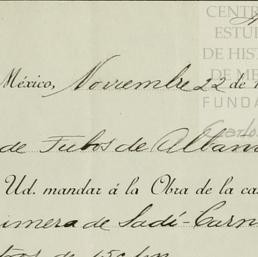 CENTR
ESTUDI
DE HIS
DE ME
FUNDA
México, Noviembre 22 de 1
de Tubos de Alban
Ud. mandar á la Obra de la ca
imera de Sadi-Carn
tros de